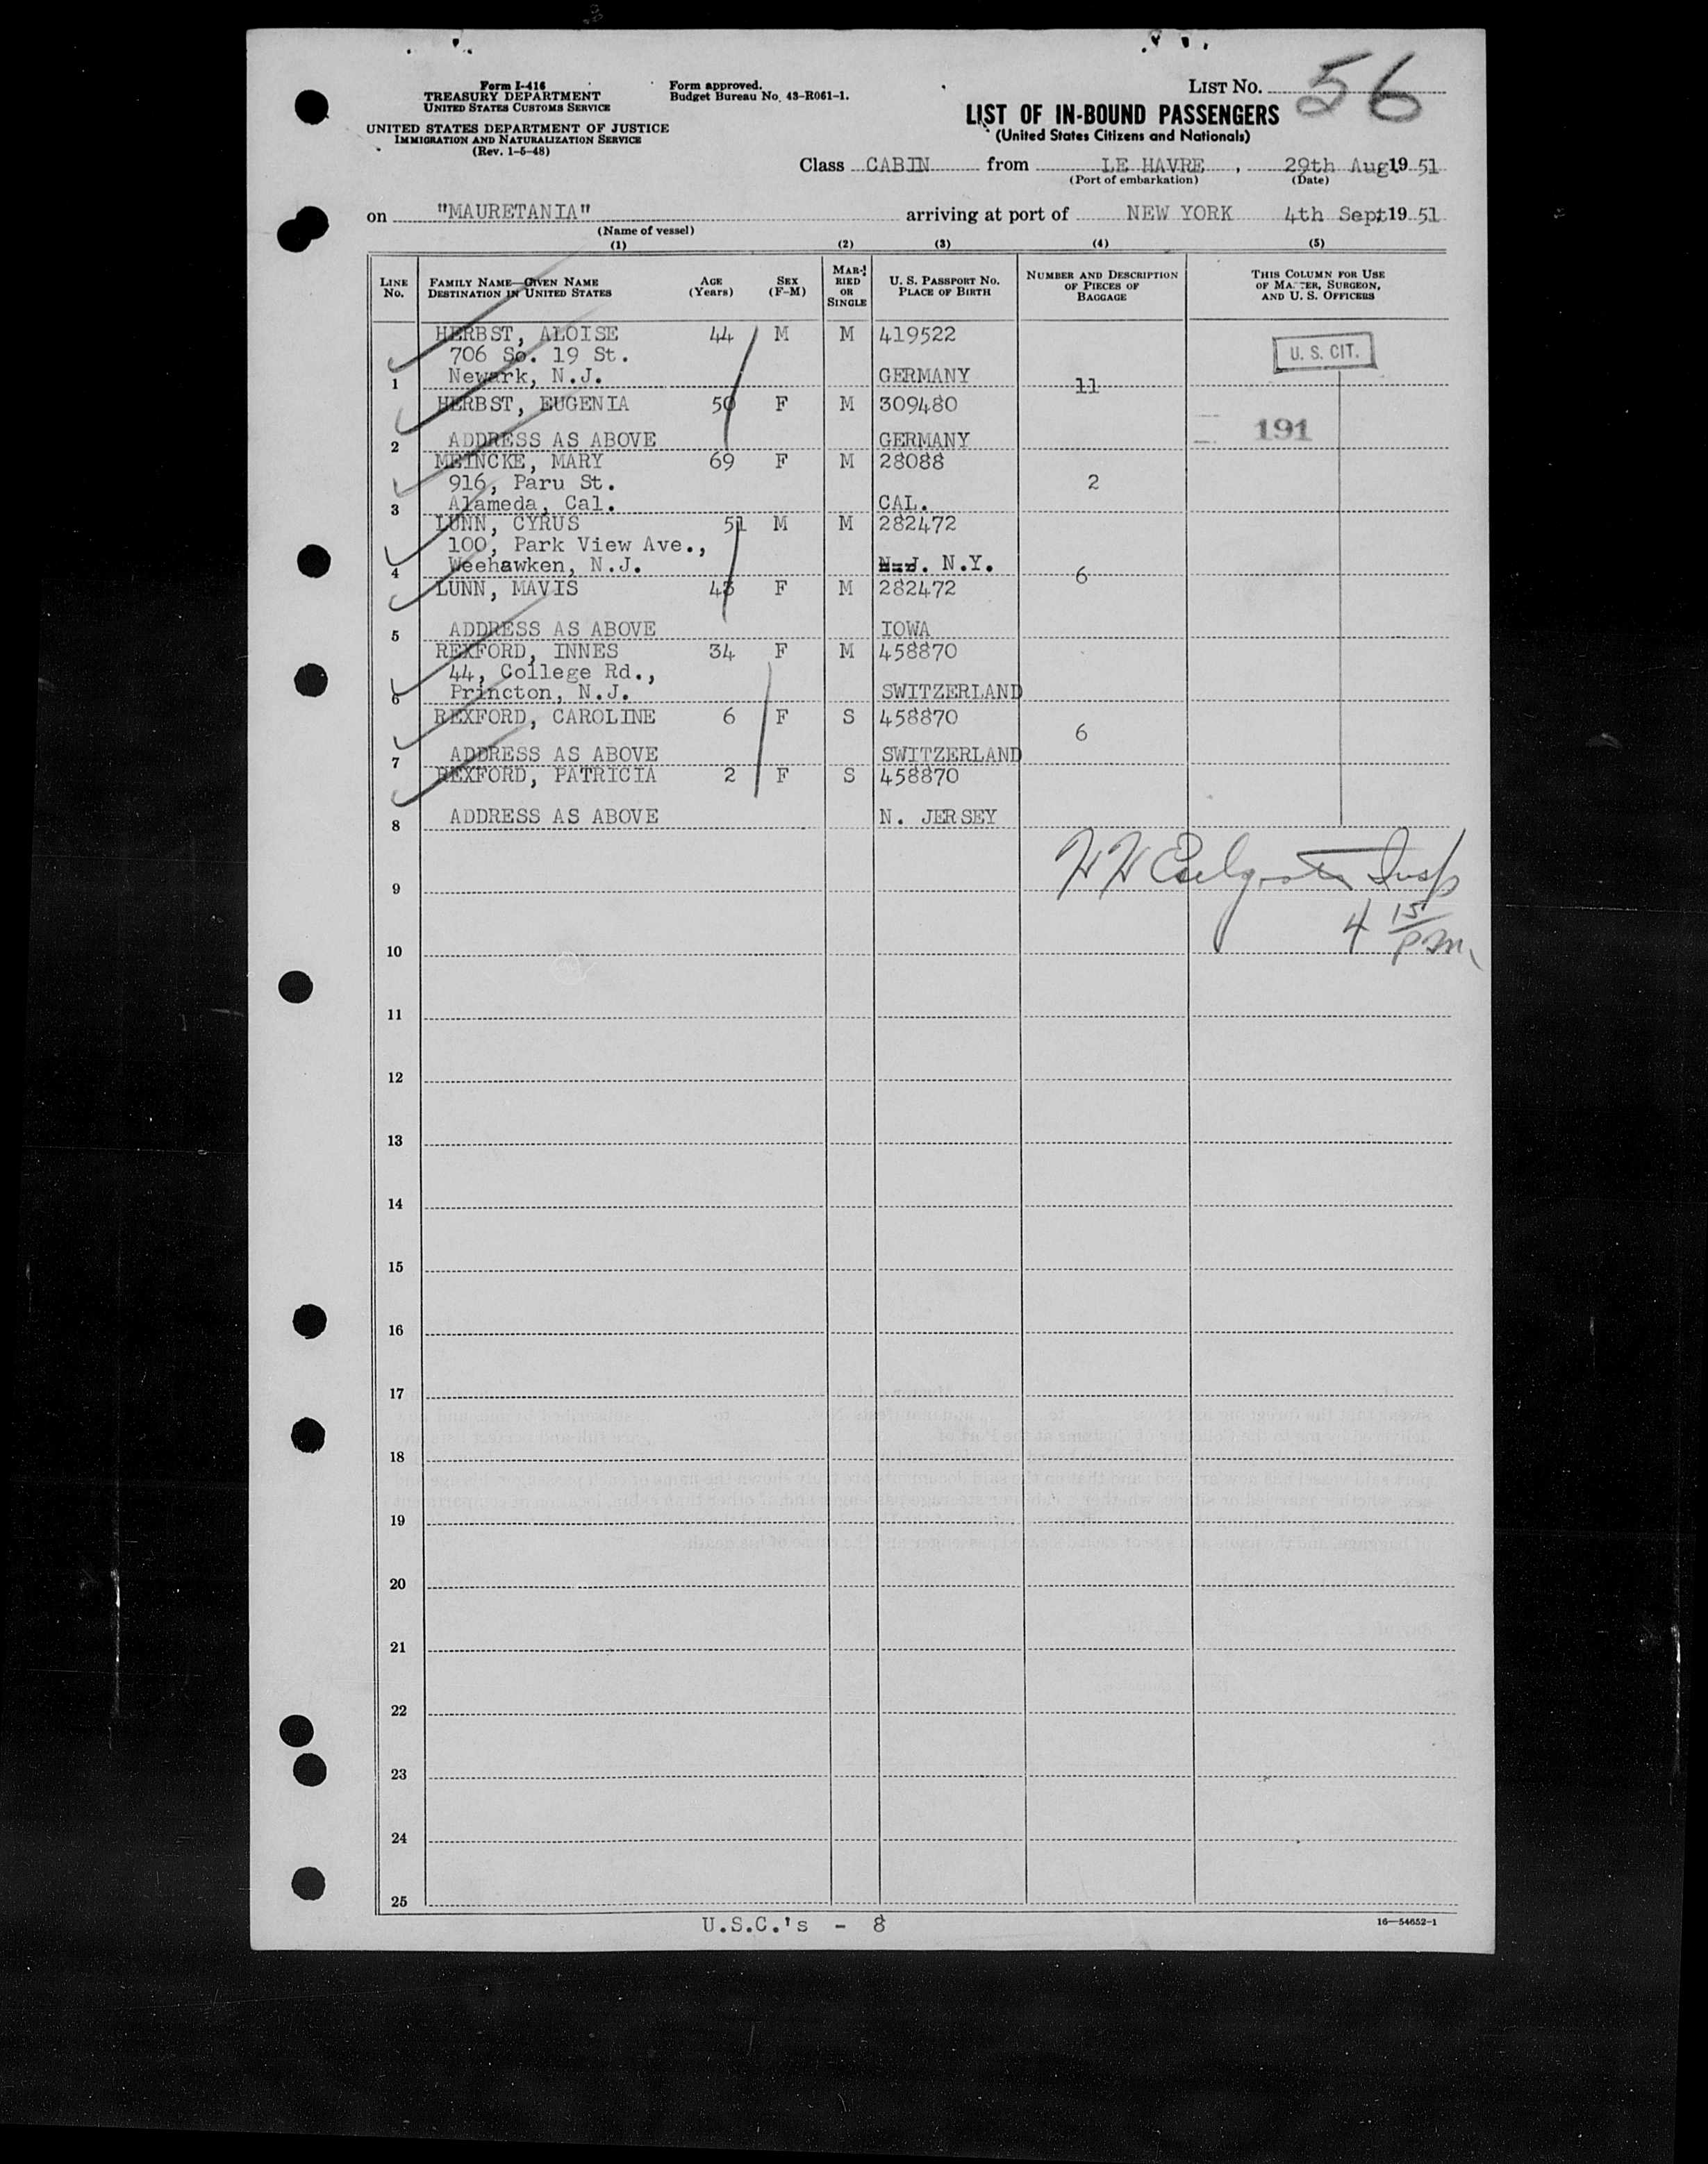 Form I-416
TREASURY DEPARTMENT
UNITED STATES CUSTOMS SERVICE
UNITED STATES DEPARTMENT OF JUSTICE
IMMIGRATION AND NATURALIZATION SERVICE
(Rev. 1-5-48)
Form approved.
Budget Bureau No. 43-R061-1.
LIST NO. 56
LIST OF IN-BOUND PASSENGERS
(United States Citizens and Nationals)
Class CABIN from LE HAVRE, 29th Aug. 19 51
(Port of embarkation) (Date)
on "MAURETANIA" arriving at port of NEW YORK 4th Sept 19 51
(Name of vessel)
(1) (2) (3) (4) (5)
LINE NO. FAMILY NAME—GIVEN NAME DESTINATION IN UNITED STATES AGE (Years) SEX (F-M) MARRIED OR SINGLE U. S. PASSPORT NO. PLACE OF BIRTH NUMBER AND DESCRIPTION OF PIECES OF BAGGAGE THIS COLUMN FOR USE OF MASTER, SURGEON, AND U. S. OFFICERS
HERBST, ALOISE 44 M M 419522
706 So. 19 St. U. S. CIT.
1 Newark, N.J. GERMANY 11
HERBST, EUGENIA 50 F M 309480
191
2 ADDRESS AS ABOVE GERMANY
MEINCKE, MARY 69 F M 28088
916, Paru St. 2
3 Alameda, Cal. CAL.
LUNN, CYRUS 51 M M 282472
100, Park View Ave.,
4 Weehawken, N.J. N.J. N.Y. 6
LUNN, MAVIS 43 F M 282472
5 ADDRESS AS ABOVE IOWA
REXFORD, INNES 34 F M 458870
44, College Rd.,
6 Princton, N.J. SWITZERLAND
REXFORD, CAROLINE 6 F S 458870
6
7 ADDRESS AS ABOVE SWITZERLAND
REXFORD, PATRICIA 2 F S 458870
8 ADDRESS AS ABOVE N. JERSEY
Insp
9
4 15/pm
10
11
12
13
14
15
16
17
18
19
20
21
22
23
24
25
U.S.C.'s - 8
16—54652-1